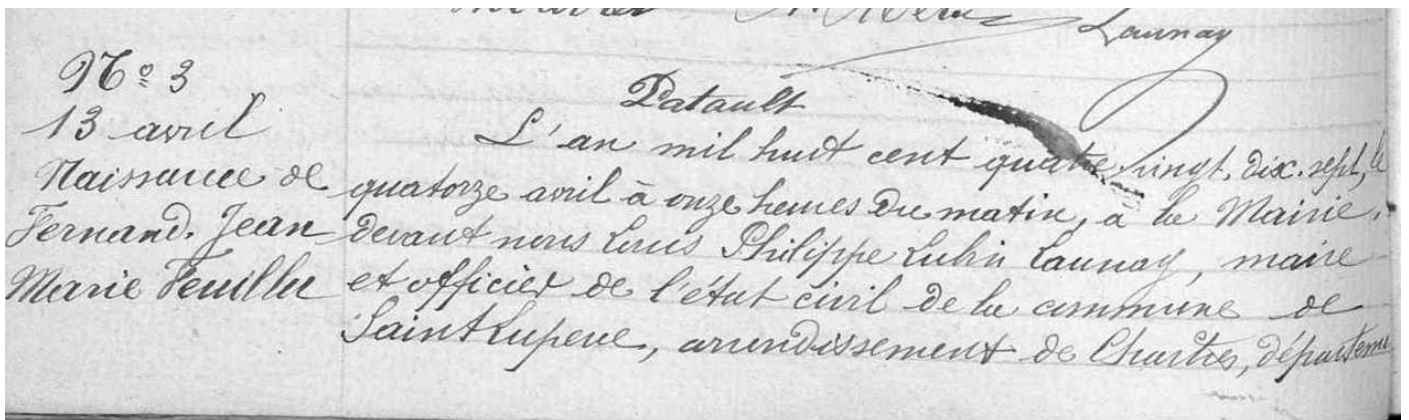 Launay
Nº 3
13 avril
Naissance de
Fernand Jean
Marie Feuillu
Patault
L'an mil huit cent quatre vingt dix sept, le
quatorze avril à onze heures du matin, à la Mairie,
devant nous Louis Philippe Lubin Launay, maire
et officier de l'état civil de la commune de
Saint Luperce, arrondissement de Chartres, départeme